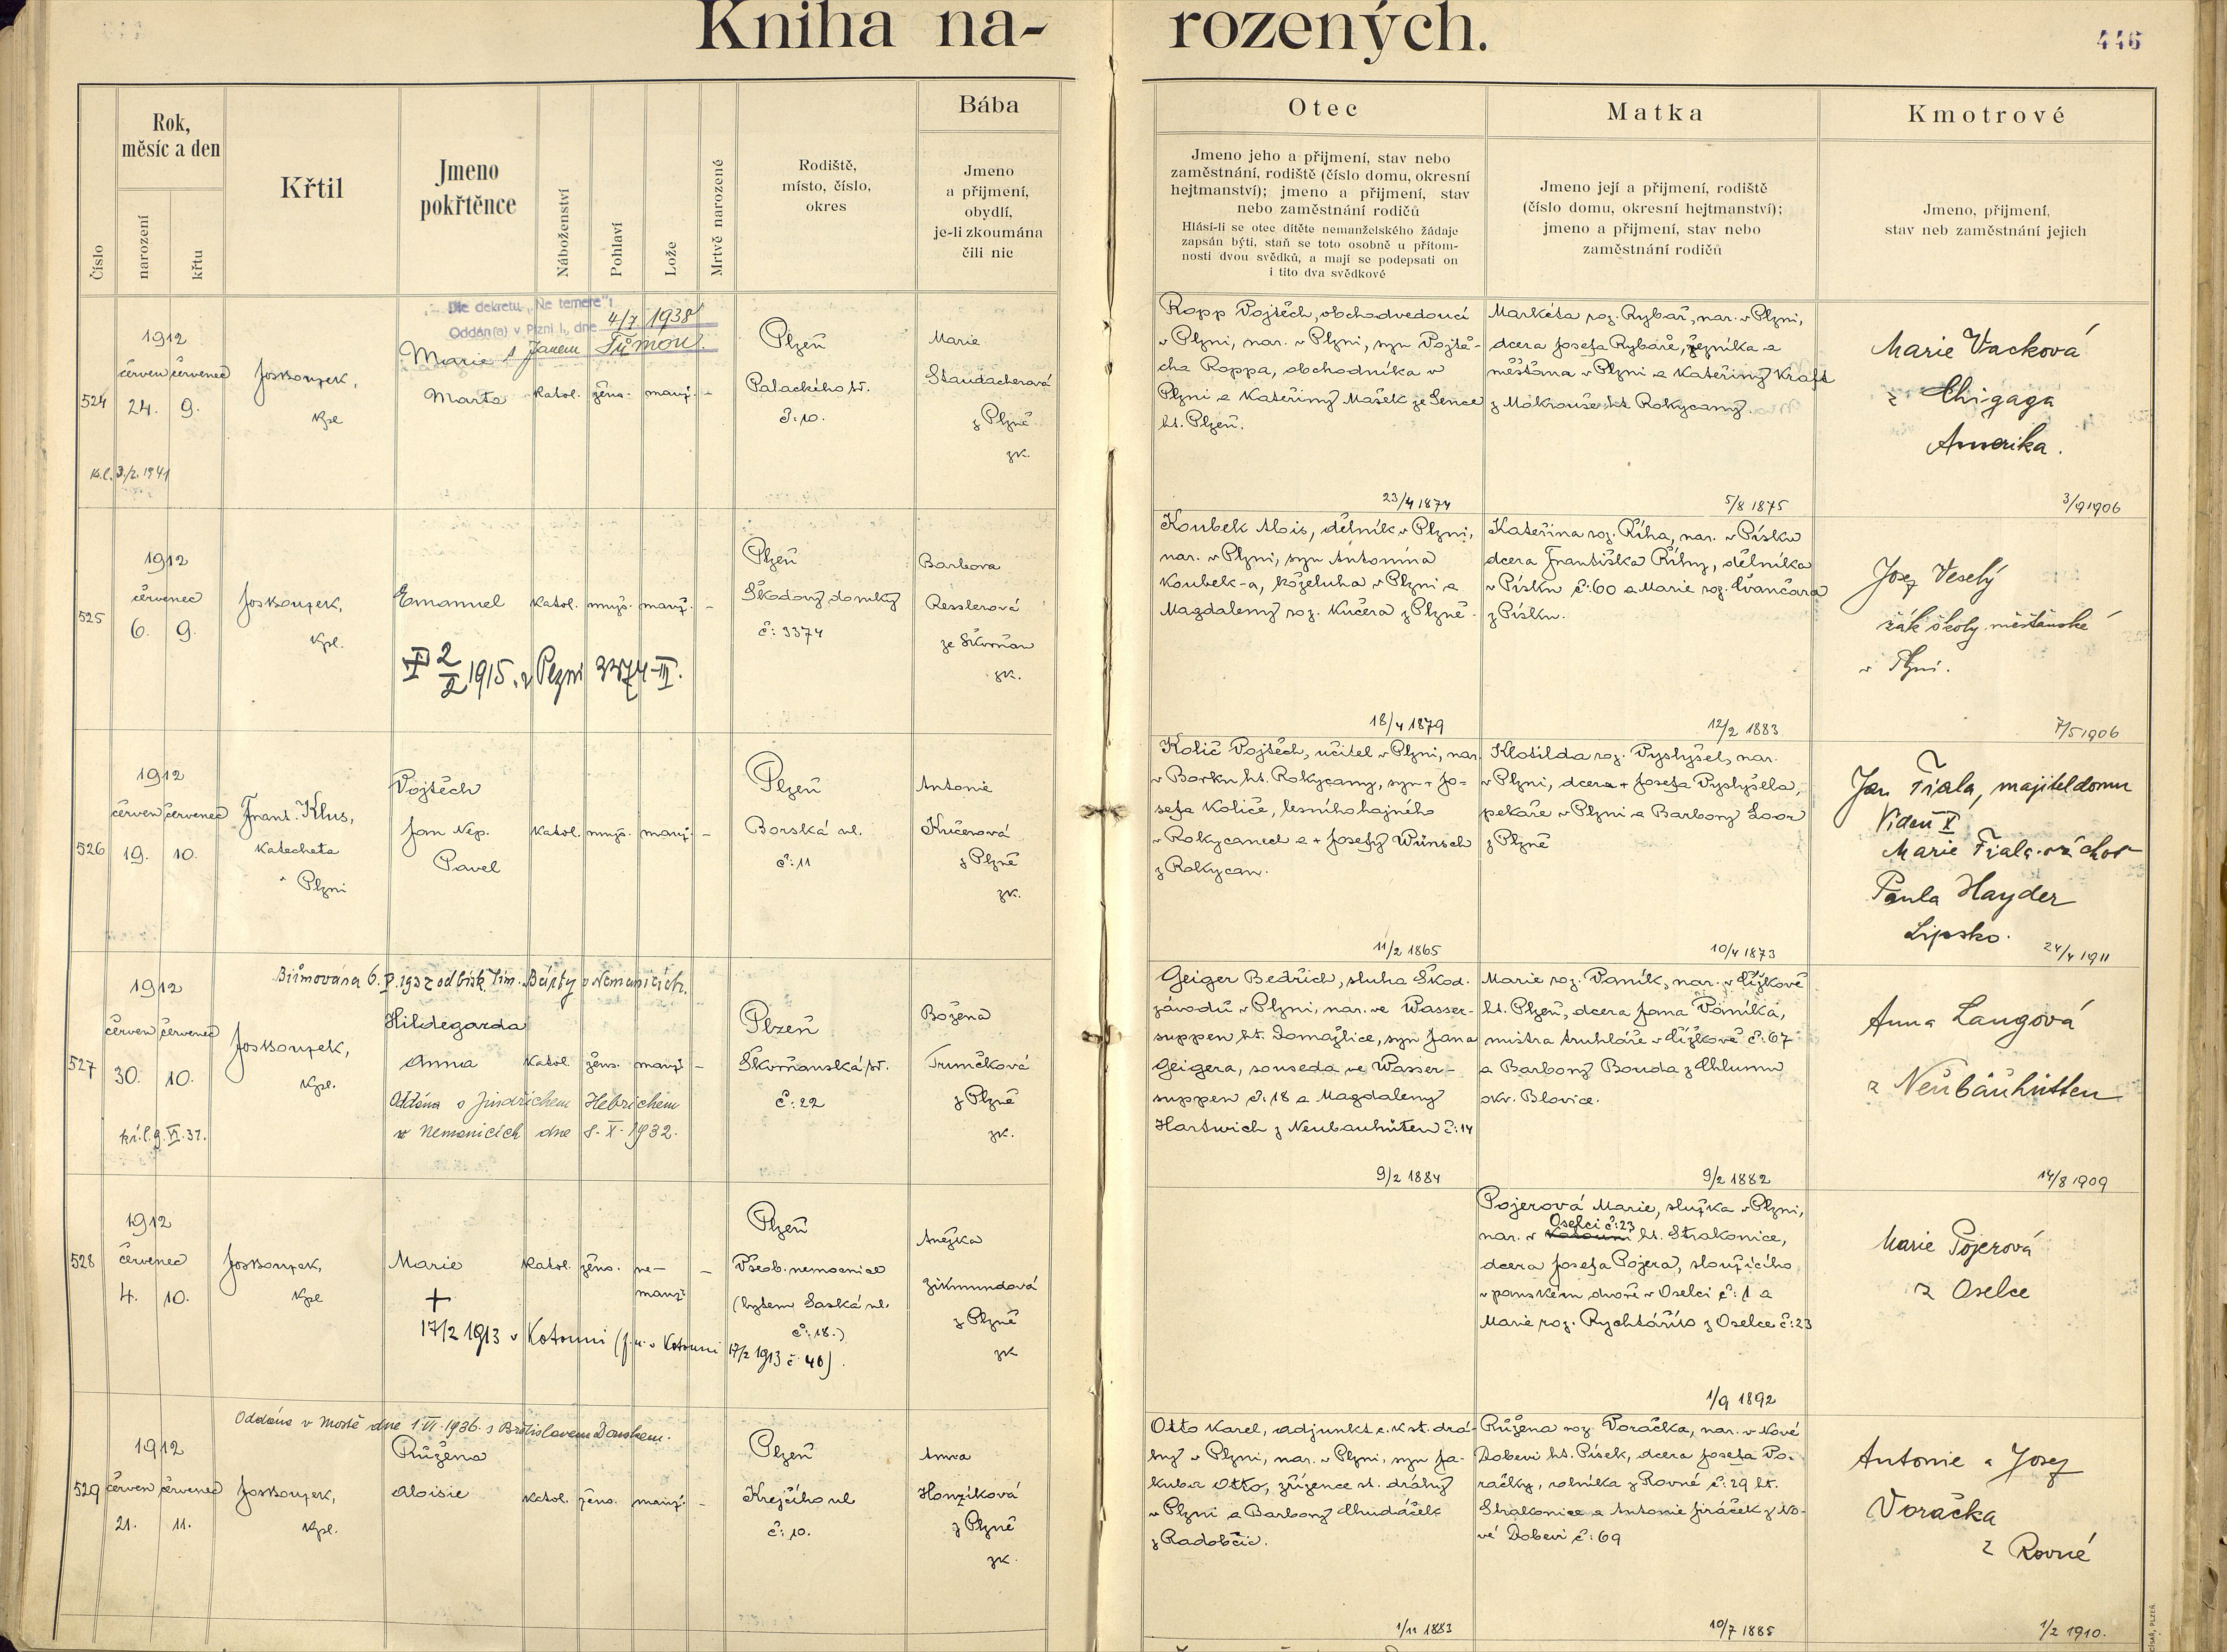 Kniha na-
rozených.
446
Číslo
Rok,
měsíc a den
narození
křtu
Křtil
Jmeno
pokřtěnce
Náboženství
Pohlaví
Lože
Mrtvě narozené
Rodiště,
místo, číslo,
okres
Bába
Jmeno
a přijmení,
obydlí,
je-li zkoumána
čili nic
Otec
Jmeno jeho a přijmení, stav nebo
zaměstnání, rodiště (číslo domu, okresní
hejtmanství); jmeno a přijmení, stav
nebo zaměstnání rodičů
Hlásí-li se otec dítěte nemanželského žádaje
zapsán býti, staň se toto osobně u přítom-
nosti dvou svědků, a mají se podepsati on
i tito dva svědkové
Matka
Jmeno její a přijmení, rodiště
(číslo domu, okresní hejtmanství);
jmeno a přijmení, stav nebo
zaměstnání rodičů
Kmotrové
Jmeno, přijmení,
stav neb zaměstnání jejich
524
1912
červen červenec
24. 9.
3./2. 1941
Jos Kourek,
Kpl
Dle dekretu „Ne temere“:
Oddán(a) v Plzni I., dne 4/7 1938
s Janem Tůmou
Marie
Marta
katol. žens. manž. -
Plzeň
Palackého tř.
č: 10.
Marie
Staudacherová
z Plzně
zk.
Ropp Vojtěch, obchodvedoucí
v Plzni, nar. v Plzni, syn Vojtě-
cha Roppa, obchodníka v
Plzni a Kateřiny Mašek ze Sence
ht. Plzeň.
23/4 1874
Markéta roz. Rybář, nar. v Plzni,
dcera Josefa Rybáře, řezníka a
měšťana v Plzni a Kateřiny Kraft
z Mokrouše ht. Rokycany.
5/8 1875
Marie Vacková
z Chigaga
Amerika.
3/9 1906
525
1912
červenec
6. 9.
Jos Kourek,
Kpl.
Emanuel
katol. mužs. manž. -
2/2 1915. v Plzni 3374-III.
Plzeň
Škodovy domky
č: 3374
Barbora
Resslerová
ze Skvrňan
zk.
Koubek Alois, dělník v Plzni,
nar. v Plzni, syn Antonína
Koubek-a, koželuha v Plzni a
Magdaleny roz. Kučera z Plzně.
18/4 1879
Kateřina roz. Říha, nar. v Písku
dcera Františka Říhy, dělníka
v Písku č: 60 a Marie roz. Švančara
z Písku.
12/2 1883
Josef Veselý
žák školy měšťanské
v Plzni.
7/5 1906
526
1912
červen červenec
19. 10.
Frant. Klus,
katecheta
v Plzni
Vojtěch
Jan Nep.
Pavel
katol. mužs. manž. -
Plzeň
Borská ul.
č: 11
Antonie
Kučerová
z Plzně
zk.
Količ Vojtěch, učitel v Plzni, nar.
v Borku ht. Rokycany, syn + Jo-
sefa Količe, lesního hajného
v Rokycanech a + Josefy Wünsch
z Rokycan.
11/2 1865
Klotilda roz. Vyslyšel, nar.
v Plzni, dcera + Josefa Vyslyšela,
pekaře v Plzni a Barbory Loor
z Plzně
10/4 1873
Jan Fiala, majitel domu
Vídeň X
Marie Fiala choť
Paula Hayder
Lipsko.
24/4 1911
527
1912
červen červenec
30. 10.
kř. l. 9. VI. 37.
Jos Kourek,
Kpl.
Biřmována 6. 1937 od bisk. Sim. Bárty v Nemanicích.
Hildegarda
Anna
katol. žens. manž. -
Oddána s Jindřichem Hebrichem
v Nemanicích dne 8. X. 1932.
Plzeň
Skvrňanská tř.
č: 22
Božena
Trunečková
z Plzně
zk.
Geiger Bedřich, sluha Škod.
závodů v Plzni, nar. ve Wasser-
suppen ht. Domažlice, syn Jana
Geigera, souseda ve Wasser-
suppen č: 18 a Magdaleny
Hartwich z Neubauhütten č: 14
9/2 1884
Marie roz. Vaník, nar. v Čižkově
ht. Plzeň, dcera Jana Vaníka,
mistra truhláře v Čižkově č: 67
a Barbory Bouda z Chlumu
okr. Blovice.
9/2 1882
Anna Langová
z Neubäuhütten
14/8 1909
528
1912
červenec
4. 10.
Jos Kourek,
Kpl
Marie
katol. žens. ne-
manž. -
+
17/2 1913 v Kotouni (f. ú. v Kotouni 17/2 1913 č 40).
Plzeň
Všeob. nemocnice
(bytem Saská ul.
č: 18.)
Anežka
Zikmundová
z Plzně
zk
Pojerová Marie, služka v Plzni,
Oselci č: 23
nar. v Kotouni ht. Strakonice,
dcera Josefa Pojera, sloužícího
v panském dvoře v Oselci č: 1 a
Marie roz. Rychtářův z Oselce č: 23
1/9 1892
Marie Pojerová
z Oselce
529
1912
červen červenec
21. 11.
Jos Kourek,
Kpl.
Oddána v Mostě dne 1. VI. 1936. s Břetislavem Danškem.
Růžena
Aloisie
katol. žens. manž. -
Plzeň
Krejčího ul
č: 10.
Anna
Honzíková
z Plzně
zk.
Otto Karel, adjunkt c. k. st. drá-
hy v Plzni, nar. v Plzni, syn Ja-
kuba Otto, zřízence st. dráhy
v Plzni a Barbory Chudáček
z Radobčic.
1/11 1883
Růžena roz. Voráčka, nar. v Nové
Dobevi ht. Písek, dcera Josefa Vo-
ráčky, rolníka z Rovné č: 29 ht.
Strakonice a Antonie Jiráček z No-
vé Dobevi č: 69
10/7 1885
Antonie a Josef
Voráčka
z Rovné
1/2 1910.
CÍSAŘ, PLZEŇ.